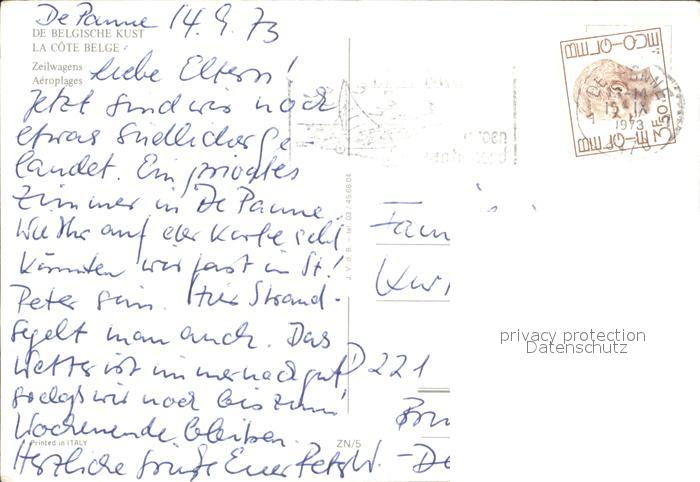 De Panne 14.9.73
DE BELGISCHE KUST
LA CÔTE BELGE
Zeilwagens
Aéroplages
Liebe Eltern!
Jetzt sind wir noch
etwas südlicher ge-
landet. Ein privates
Zimmer in De Panne.
Wie Ihr auf der Karte seht
könnten wir fast in St.!
Peter sein. Hier Strand-
segelt man auch. Das
Wetter ist immer noch gut
sodass wir noch bis zum
Wochenende bleiben.
Herzliche Grüße Euer Peter W.
Printed in ITALY
ZN/5
J.V.d.B.
Fam
Kur
D 221
BELGIE-BELGIQUE
3F50
DE PANNE
15 IX
1973
privacy protection
Datenschutz